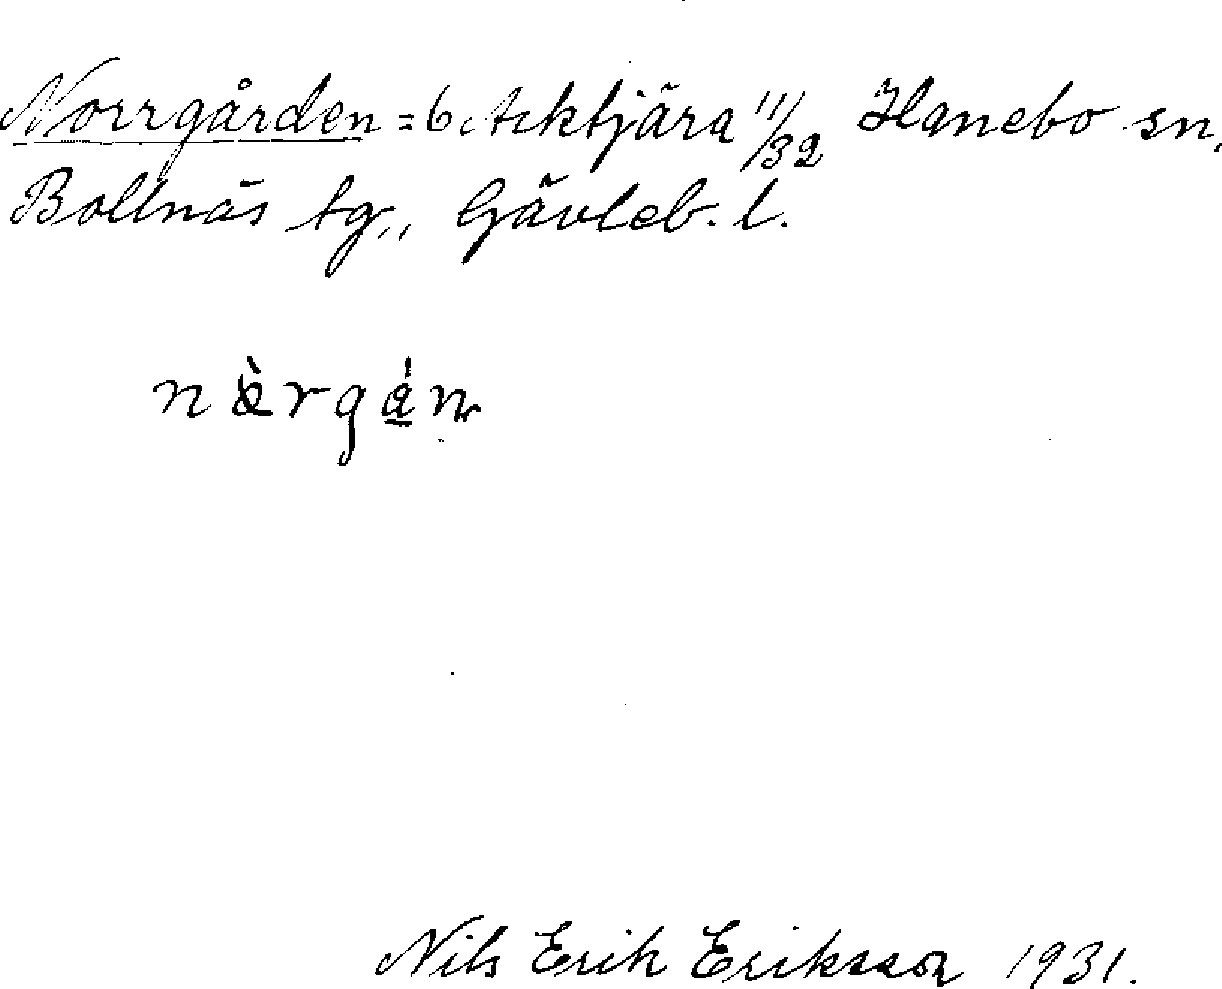 Norrgården = 6 Acktjära 11/32 Hanebo sn,
Bollnäs tg., Gävleb. l.
nòrgá̱n
Nils Erik Eriksson 1931.